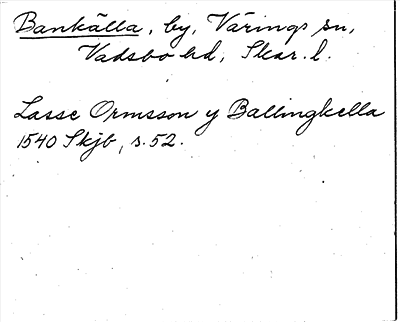 Bankälla, by, Värings sn,
Vadsbo hd, Skar. l.
Lasse Ormsson y Ballingkella
1540 Skjb, s. 52.